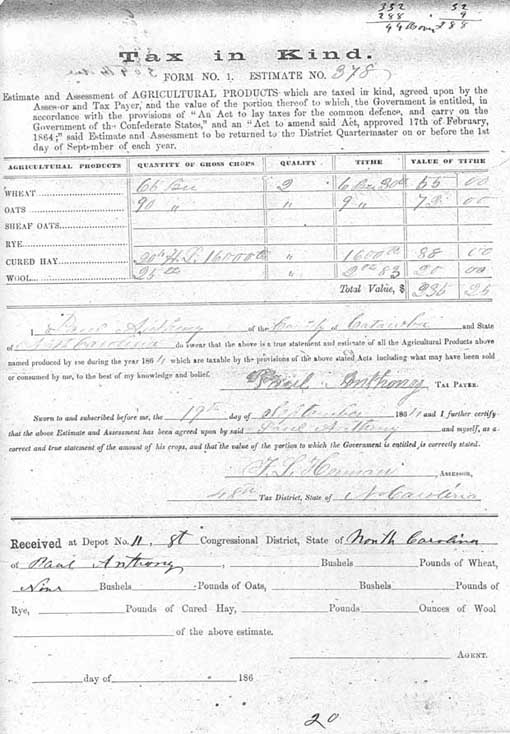 352 52
288 9
Tax in Kind.
FORM NO. 1. ESTIMATE NO. 378
Estimate and Assessment of AGRICULTURAL PRODUCTS which are taxed in kind, agreed upon by the
Assessor and Tax Payer, and the value of the portion thereof to which the Government is entitled, in
accordance with the provisions of "An Act to lay taxes for the common defence, and carry on the
Government of the Confederate States," and an "Act to amend said Act, approved 17th of February,
1864;" said Estimate and Assessment to be returned to the District Quartermaster on or before the 1st
day of September of each year.
AGRICULTURAL PRODUCTS QUANTITY OF GROSS CROPS QUALITY TITHE VALUE OF TITHE
WHEAT 66 Bu 2 6 Bu 55 00
OATS 90 " " 9 " 72 00
SHEAF OATS
RYE
CURED HAY 16000 " 1600 88 00
WOOL 25 " 20 00
Total Value, $ 235 25
I Paul Anthony of the County of Catawba and State
of North Carolina do swear that the above is a true statement and estimate of all the Agricultural Products above
named produced by me during the year 1864, which are taxable by the provisions of the above stated Acts including what may have been sold
or consumed by me, to the best of my knowledge and belief.
Paul Anthony TAX PAYER.
Sworn to and subscribed before me, the 19th day of September 1864 and I further certify
that the above Estimate and Assessment has been agreed upon by said Paul Anthony and myself, as a
correct and true statement of the amount of his crops, and that the value of the portion to which the Government is entitled, is correctly stated.
Herman, ASSESSOR,
48th Tax District, State of N Carolina
Received at Depot No. 11, 8t Congressional District, State of North Carolina
of Paul Anthony, Bushels Pounds of Wheat,
Bushels Pounds of Oats, Bushels Pounds of
Rye, Pounds of Cured Hay, Pounds Ounces of Wool
of the above estimate.
AGENT.
day of 186
20